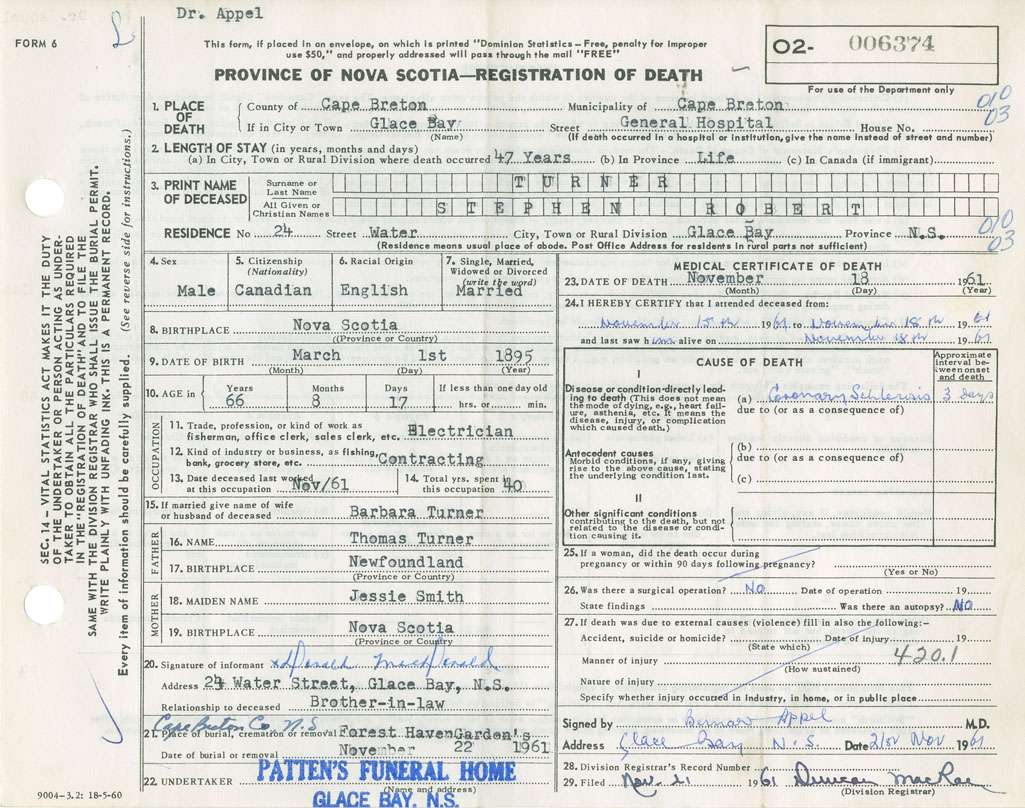 Dr. Appel
FORM 6
This form, if placed in an envelope, on which is printed "Dominion Statistics—Free, penalty for improper
use $50," and properly addressed will pass through the mail "FREE"
PROVINCE OF NOVA SCOTIA—REGISTRATION OF DEATH
O2- 006374
For use of the Department only
1. PLACE OF DEATH
County of Cape Breton Municipality of Cape Breton
010
03
If in City or Town Glace Bay Street General Hospital House No.
(Name) (If death occurred in a hospital or institution, give the name instead of street and number)
2. LENGTH OF STAY (in years, months and days)
(a) In City, Town or Rural Division where death occurred 47 Years (b) In Province Life (c) In Canada (if immigrant)
3. PRINT NAME OF DECEASED
Surname or Last Name TURNER
All Given or Christian Names STEPHEN ROBERT
RESIDENCE No 24 Street Water City, Town or Rural Division Glace Bay Province N.S.
010
03
(Residence means usual place of abode. Post Office Address for residents in rural parts not sufficient)
4. Sex
Male
5. Citizenship
(Nationality)
Canadian
6. Racial Origin
English
7. Single, Married, Widowed or Divorced
(write the word)
Married
8. BIRTHPLACE Nova Scotia
(Province or Country)
9. DATE OF BIRTH March 1st 1895
(Month) (Day) (Year)
10. AGE in
Years Months Days If less than one day old
66 8 17 hrs. or min.
OCCUPATION
11. Trade, profession, or kind of work as
fisherman, office clerk, sales clerk, etc. Electrician
12. Kind of industry or business, as fishing,
bank, grocery store, etc. Contracting
13. Date deceased last worked
at this occupation Nov/61
14. Total yrs. spent in
this occupation 40
15. If married give name of wife
or husband of deceased Barbara Turner
FATHER
16. NAME Thomas Turner
17. BIRTHPLACE Newfoundland
(Province or Country)
MOTHER
18. MAIDEN NAME Jessie Smith
19. BIRTHPLACE Nova Scotia
(Province or Country)
20. Signature of informant x Donald MacDonald
Address 24 Water Street, Glace Bay, N.S.
Relationship to deceased Brother-in-law
Cape Breton Co N.S
21. Place of burial, cremation or removal Forest HavenGarden's
Date of burial or removal November 22 1961
22. UNDERTAKER PATTEN'S FUNERAL HOME
(Name and address)
GLACE BAY, N.S.
9004-3.2: 18-5-60
MEDICAL CERTIFICATE OF DEATH
23. DATE OF DEATH November 18 1961
(Month) (Day) (Year)
24. I HEREBY CERTIFY that I attended deceased from:
November 15th 1961 to November 18th 1961
and last saw him alive on November 18th 1961
CAUSE OF DEATH
Approximate interval between onset and death
I
Disease or condition-directly lead-
ing to death (This does not mean
the mode of dying, e.g., heart fail-
ure, asthenia, etc. It means the
disease, injury, or complication
which caused death.)
(a) Coronary Sclerosis 3 days
due to (or as a consequence of)
Antecedent causes
Morbid conditions, if any, giving
rise to the above cause, stating
the underlying condition last.
(b)
due to (or as a consequence of)
(c)
II
Other significant conditions
contributing to the death, but not
related to the disease or condi-
tion causing it.
25. If a woman, did the death occur during
pregnancy or within 90 days following pregnancy?
(Yes or No)
26. Was there a surgical operation? NO Date of operation 19
State findings Was there an autopsy? NO
27. If death was due to external causes (violence) fill in also the following:—
Accident, suicide or homicide? Date of injury 19
(State which)
420.1
Manner of injury
(How sustained)
Nature of injury
Specify whether injury occurred in Industry, in home, or in public place
Signed by Bernard Appel M.D.
Address Glace Bay N.S. Date Nov 1961
28. Division Registrar's Record Number
29. Filed Nov. 21 1961 Duncan MacRae
(Division Registrar)
SEC. 14 – VITAL STATISTICS ACT MAKES IT THE DUTY
OF THE UNDERTAKER OR PERSON ACTING AS UNDER-
TAKER TO OBTAIN ALL THE PARTICULARS REQUIRED
IN THE "REGISTRATION OF DEATH" AND TO FILE THE
SAME WITH THE DIVISION REGISTRAR WHO SHALL ISSUE THE BURIAL PERMIT.
WRITE PLAINLY WITH UNFADING INK. THIS IS A PERMANENT RECORD.
Every item of information should be carefully supplied. (See reverse side for instructions.)